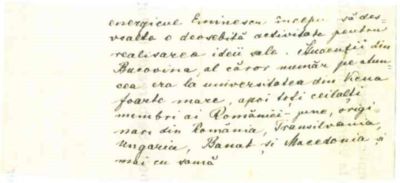 energicul Eminescu începu să des-
voalte o deosebită activitate pentru
realisarea ideii sale. Studenții din
Bucovina, al căror număr pe atun-
cea era la universitatea din Viena
foarte mare, apoi toți ceilalți
membri ai României-june, origi-
nari din România, Transilvania,
Ungaria, Banat și Macedonia și
mai cu samă